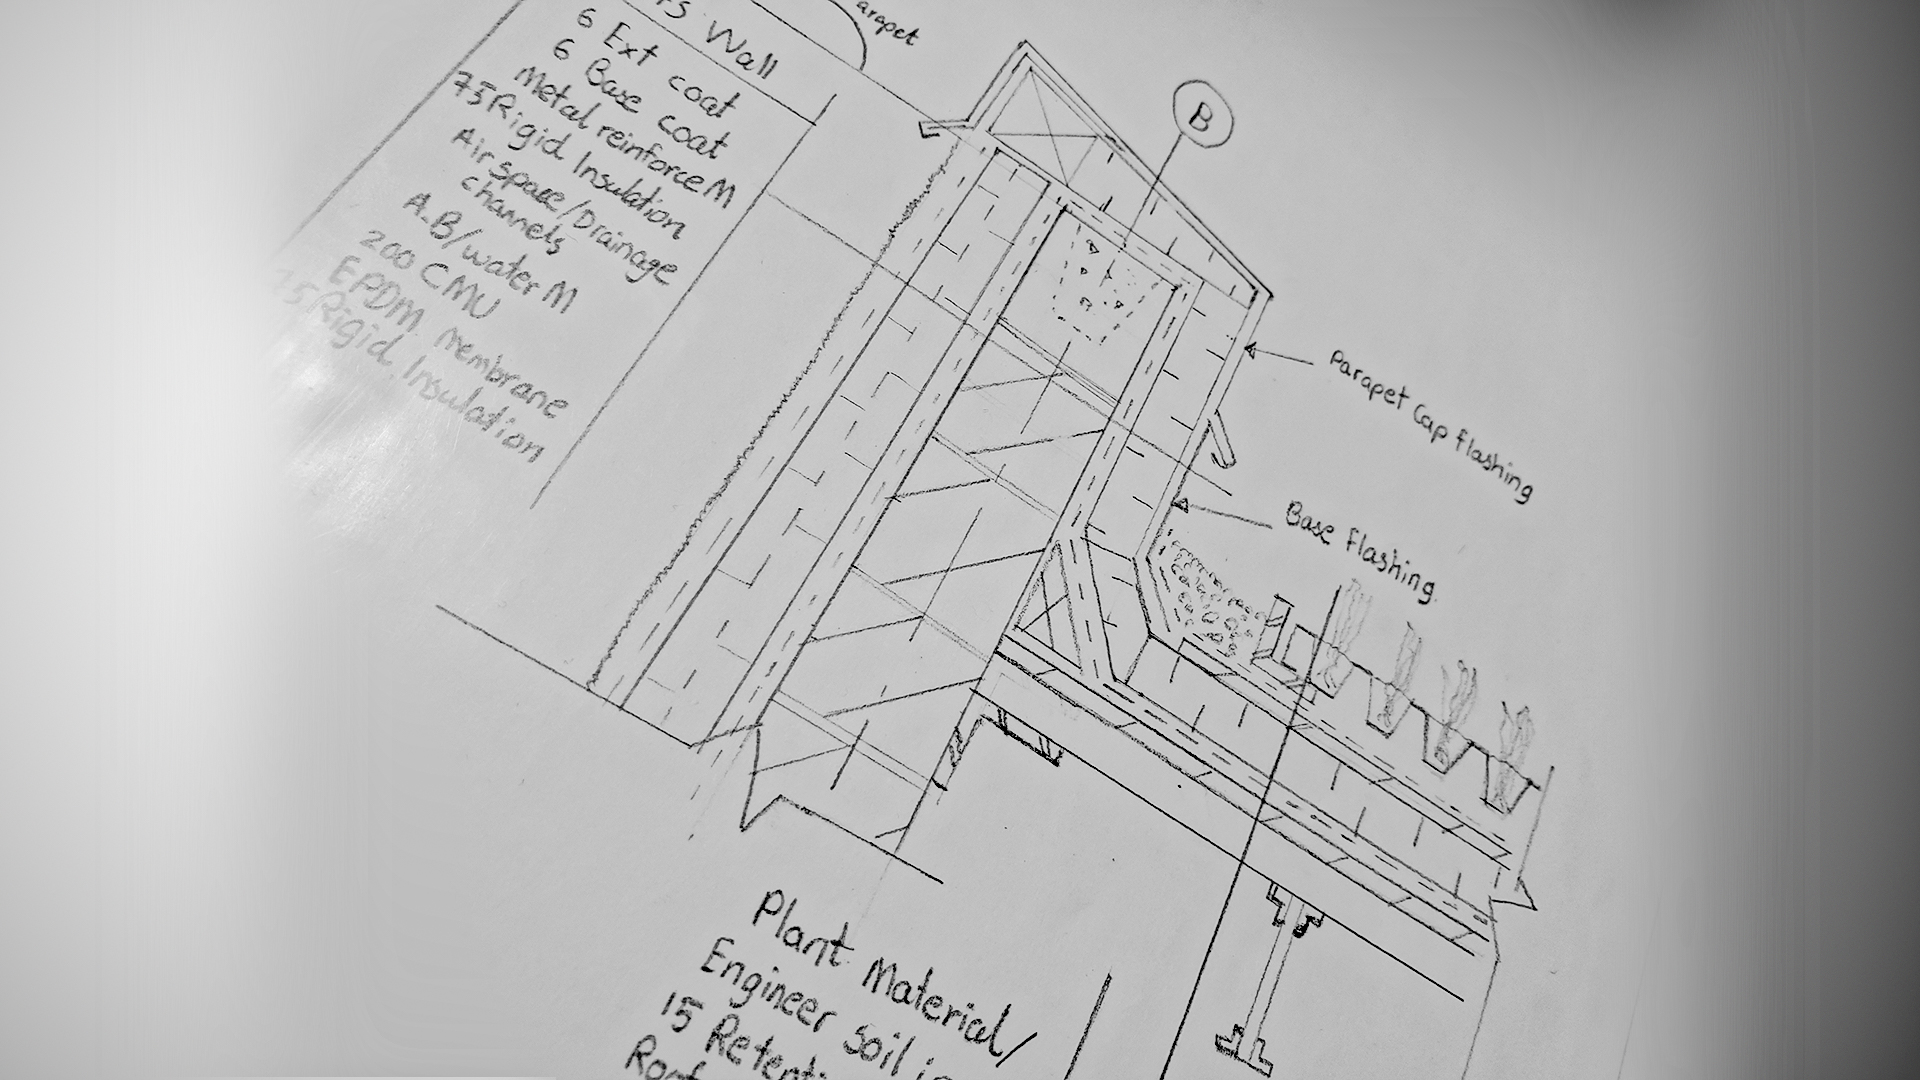 Wall
6 Ext coat
6 Base coat
Metal reinforce M
75 Rigid Insulation
Air space/Drainage
channels
A.B/water M
200 CMU
EPDM membrane
75 Rigid Insulation
arapet
B
Parapet Cap flashing
Base flashing
Plant Material/
Engineer soil
15